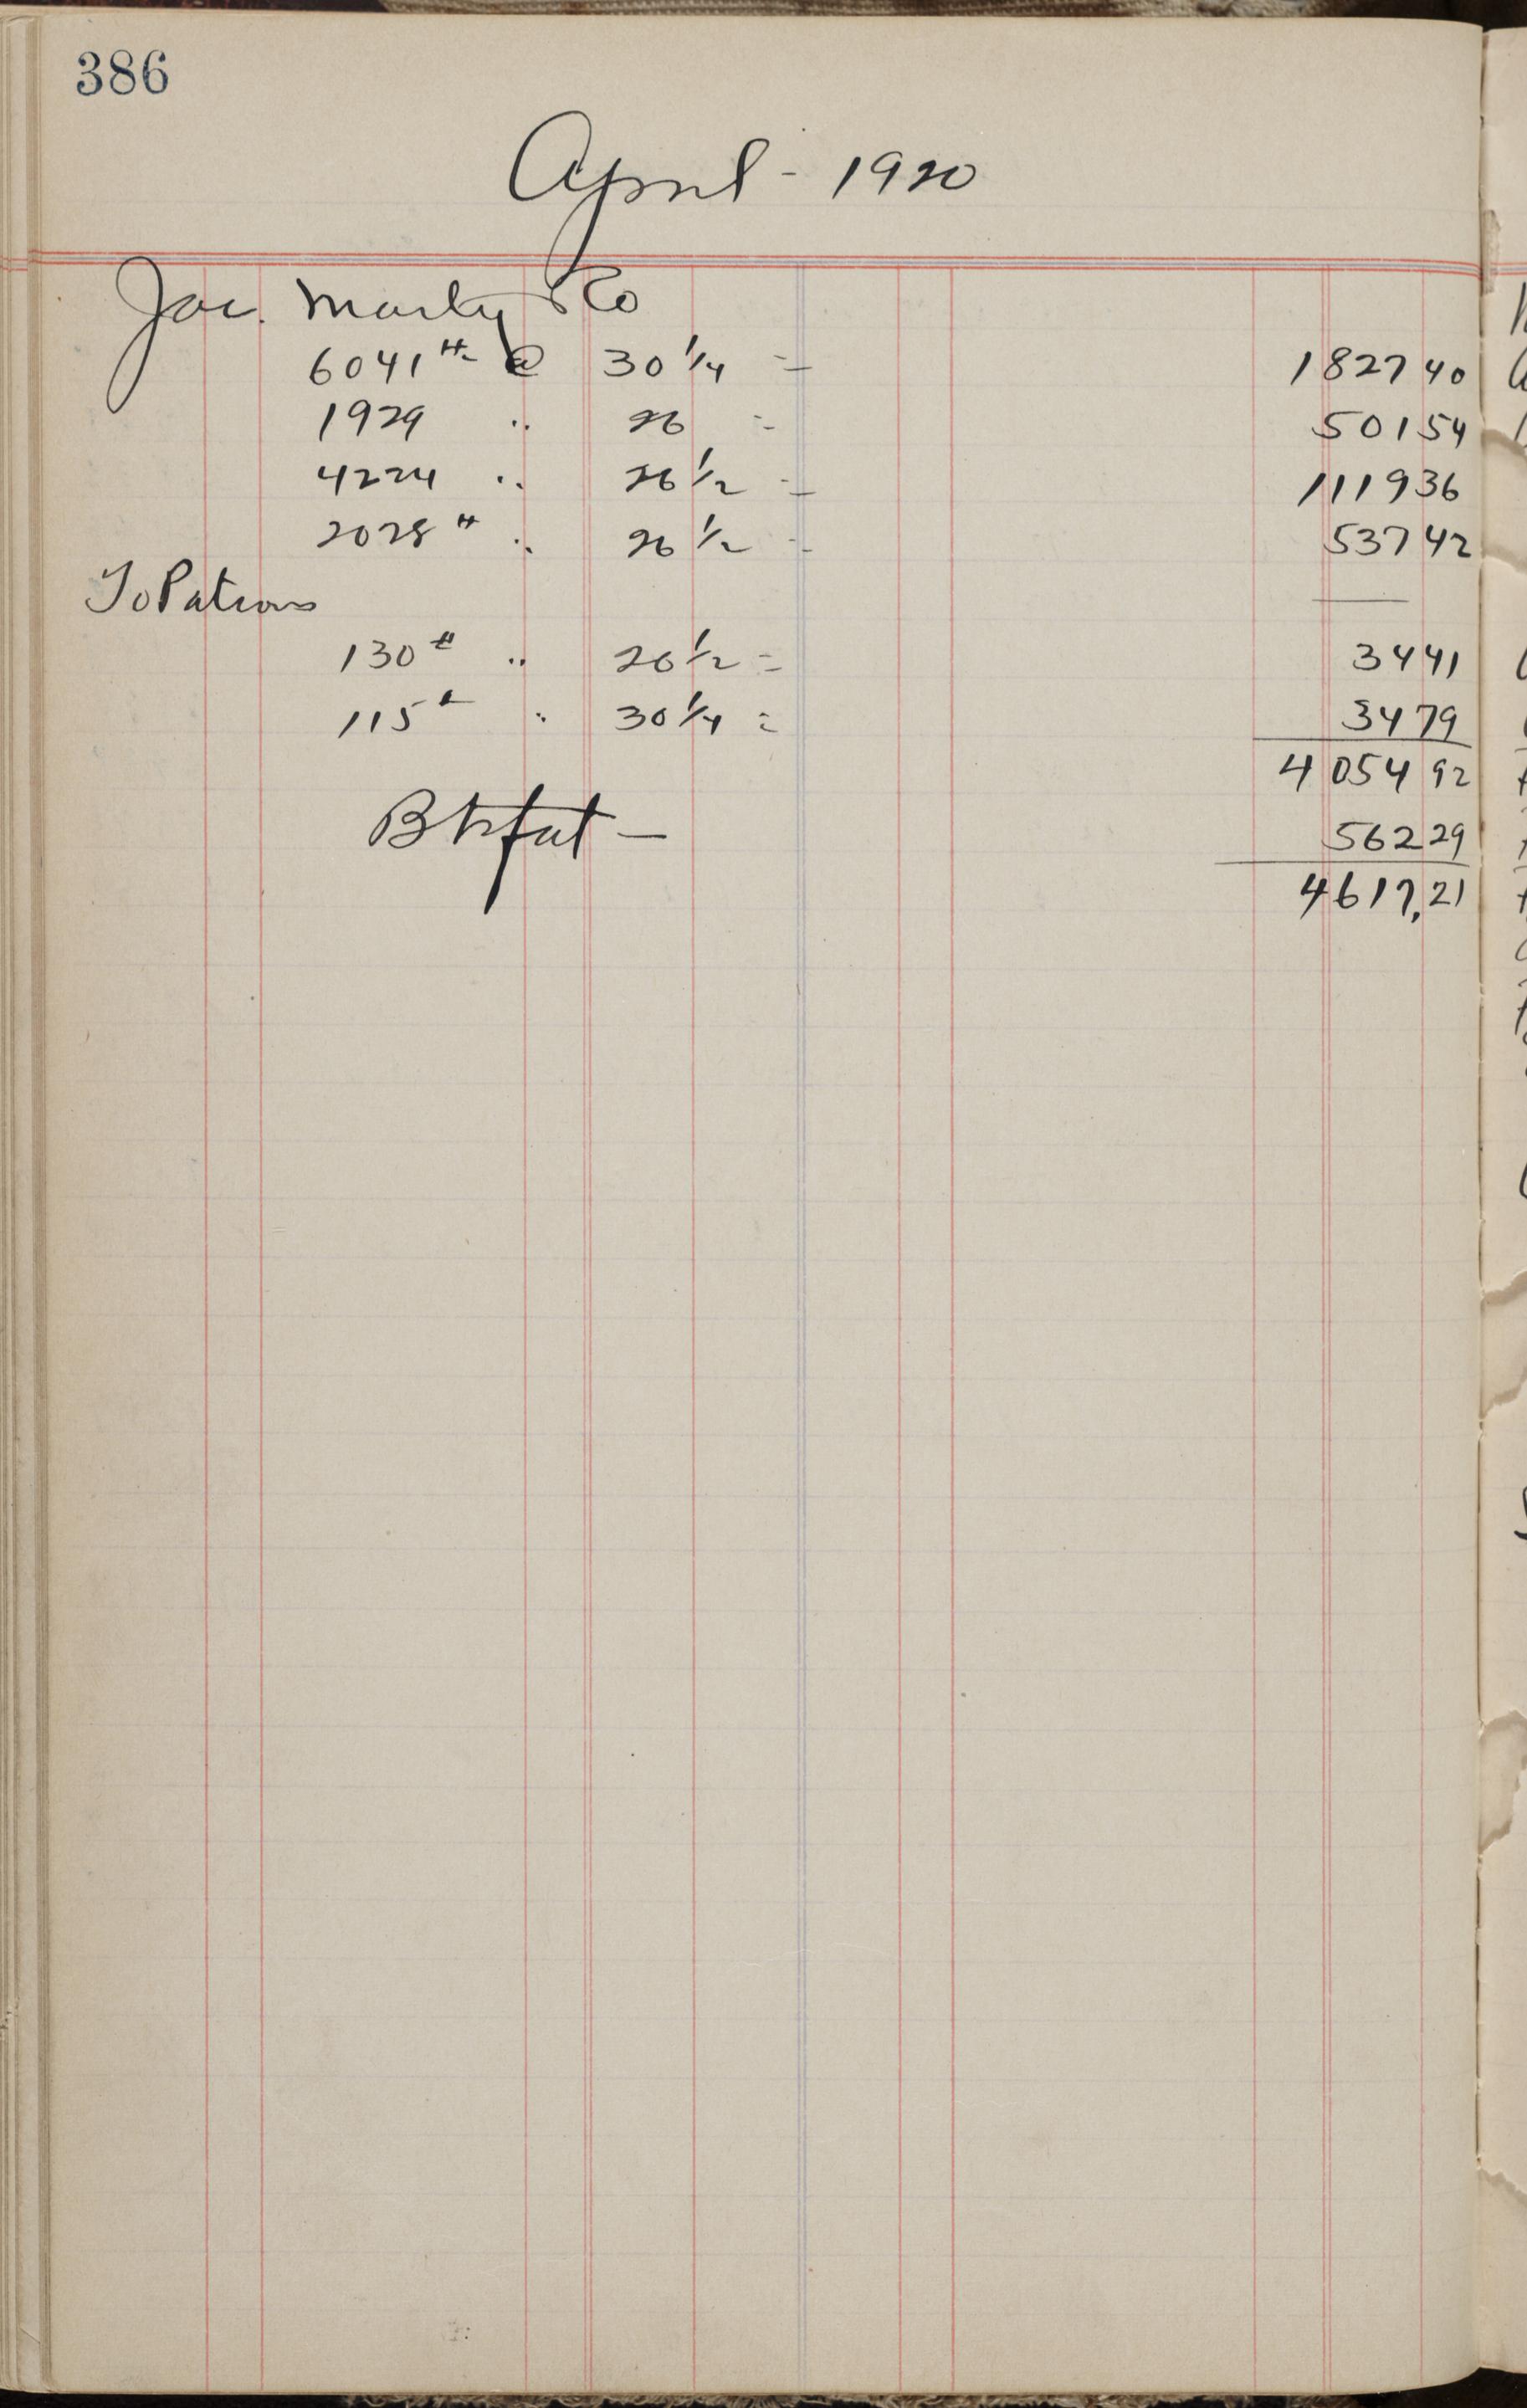 386
April - 1920
Jac. Marty & Co
6041 # @ 30 1/4 = 1827 40
1929 " 26 = 501 54
4224 " 26 1/2 = 1119 36
2028 # " 26 1/2 = 537 42
To Patrons
130 # " 26 1/2 = 34 41
115 # " 30 1/4 = 34 79
4054 92
Btrfat - 562 29
4617.21